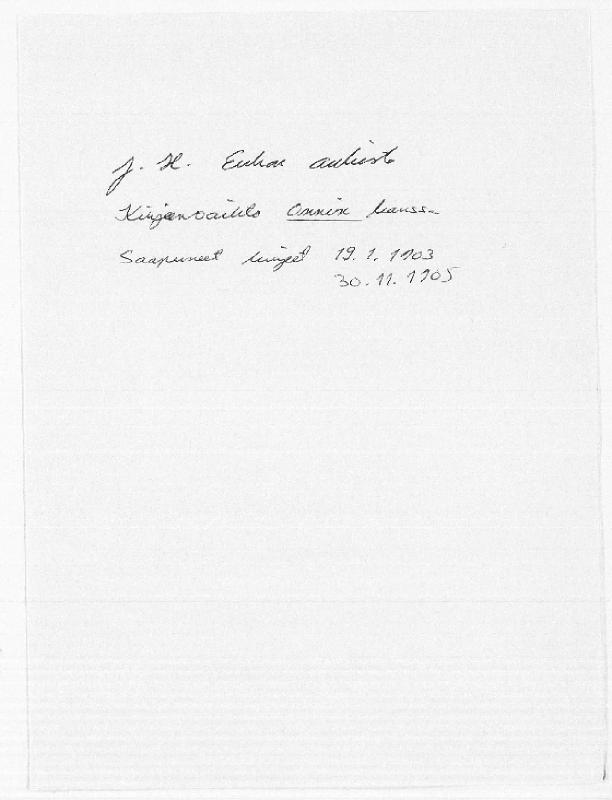 J. H. Erkon arkisto
Kirjeenvaihto Onnin kanssa
Saapuneet kirjeet 19.1.1903
30.11.1905